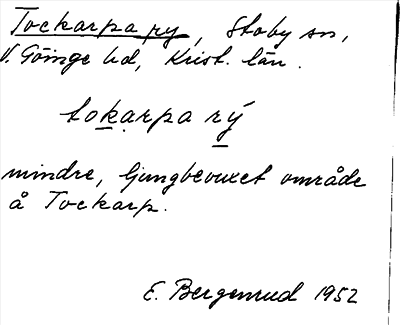 Tockarpa ry, Stoby sn,
V. Göinge hd, Krist. län.
tokarpa rý
mindre, ljungbevuxet område
å Tockarp.
E. Bergenrud 1952